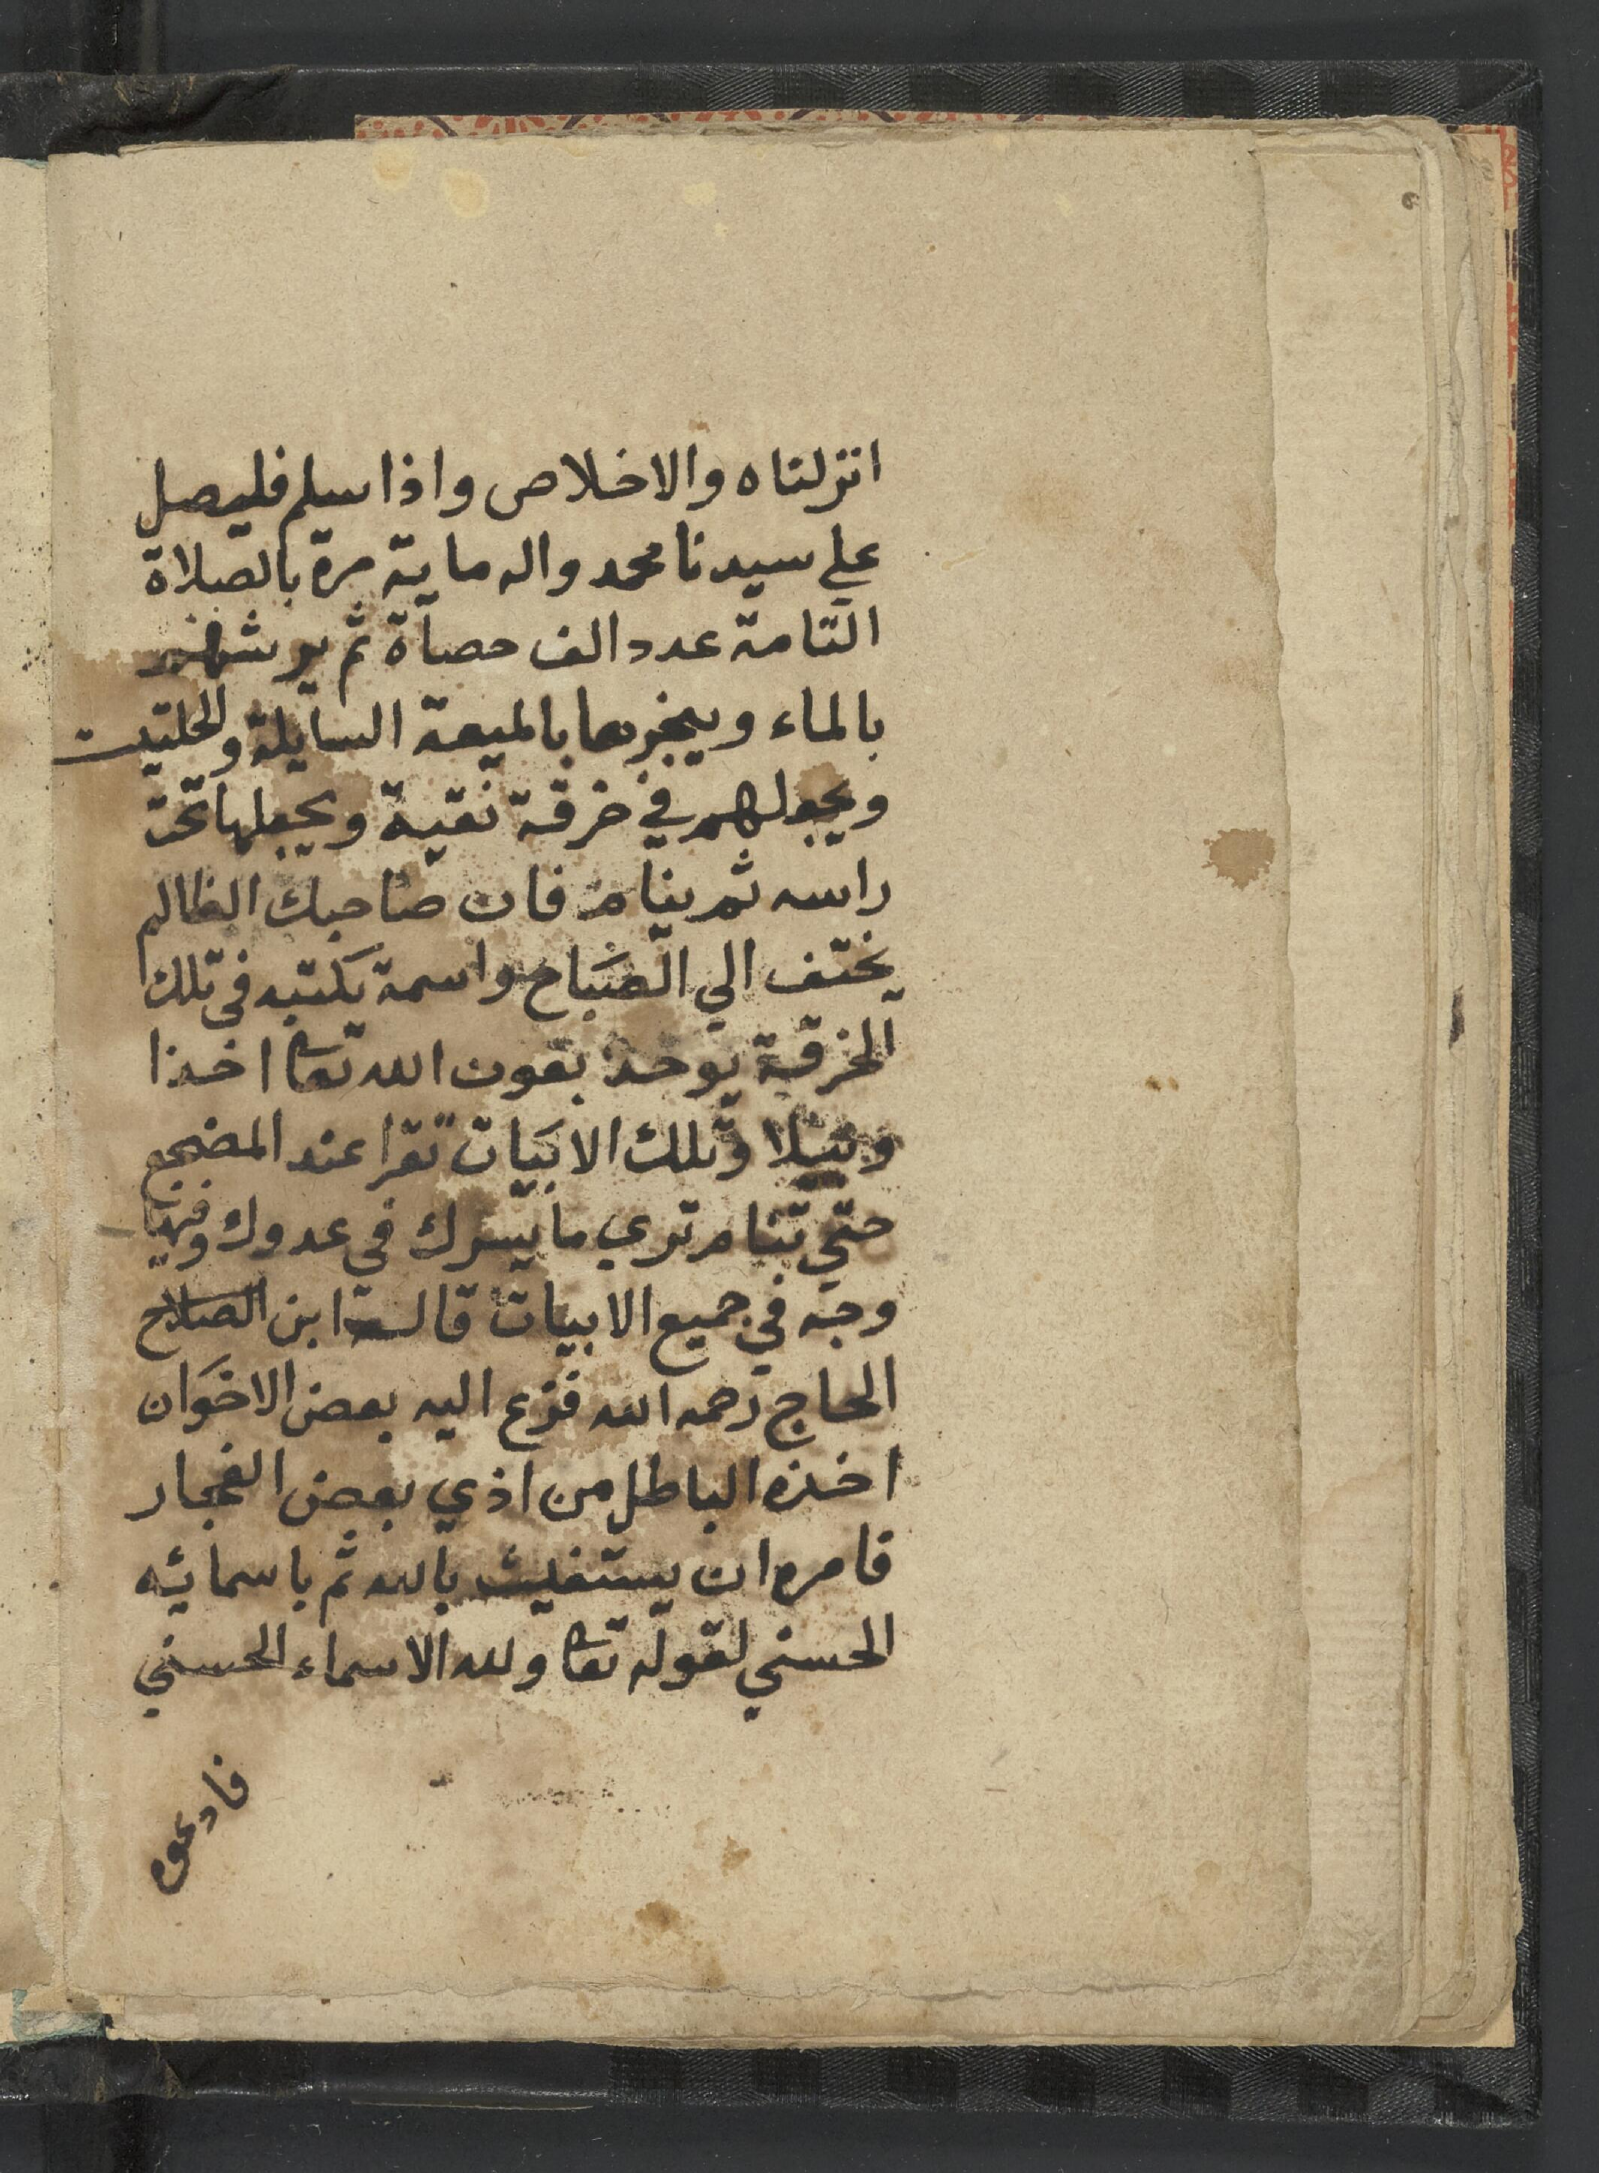 انزلناه والاخلاص واذا سلم فليصل
علي سيدنا محمد واله ماية مرة بالصلاة
التامة عدد الف حصاة ثم يرشهم
بالماء ويبخرها بالميعة السايلة والحلتيت
ويجعلهم في خرقة نقية ويجعلها تحت
راسه ثم ينام فان صاحبك الظالم
يختف الي الصباح واسمة يكتبه في تلك
الخرقة يوخذ بعون الله تعا اخذا
وبيلا وتلك الابيات تقرا عند المضجع
حتي تنام تري ما يسرك في عدوك وفيها
وجه في جميع الابيات قال ابن الصلاح
الحاج رحمه الله فزع اليه بعض الاخوان
اخذه الباطل من اذي بعض الفجار
فامره ان يستغيث بالله ثم باسمائه
الحسني لقوله تعا ولله الاسماء الحسني
فادعوه